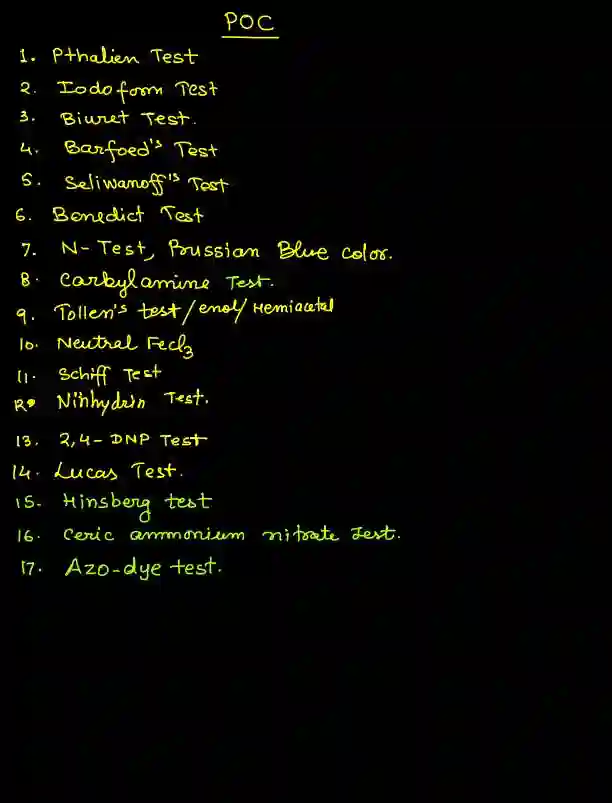 POC
1. Pthalien Test
2. Iodoform Test
3. Biuret Test.
4. Barfoed's Test
5. Seliwanoff's Test
6. Benedict Test
7. N-Test, Prussian Blue color.
8. Carbylamine Test.
9. Tollen's test/enol/Hemiacetal
10. Neutral FeCl3
11. Schiff Test
12. Ninhydrin Test.
13. 2,4-DNP Test
14. Lucas Test.
15- Hinsberg test
16. Ceric ammonium nitrate Test.
17. Azo-dye test.